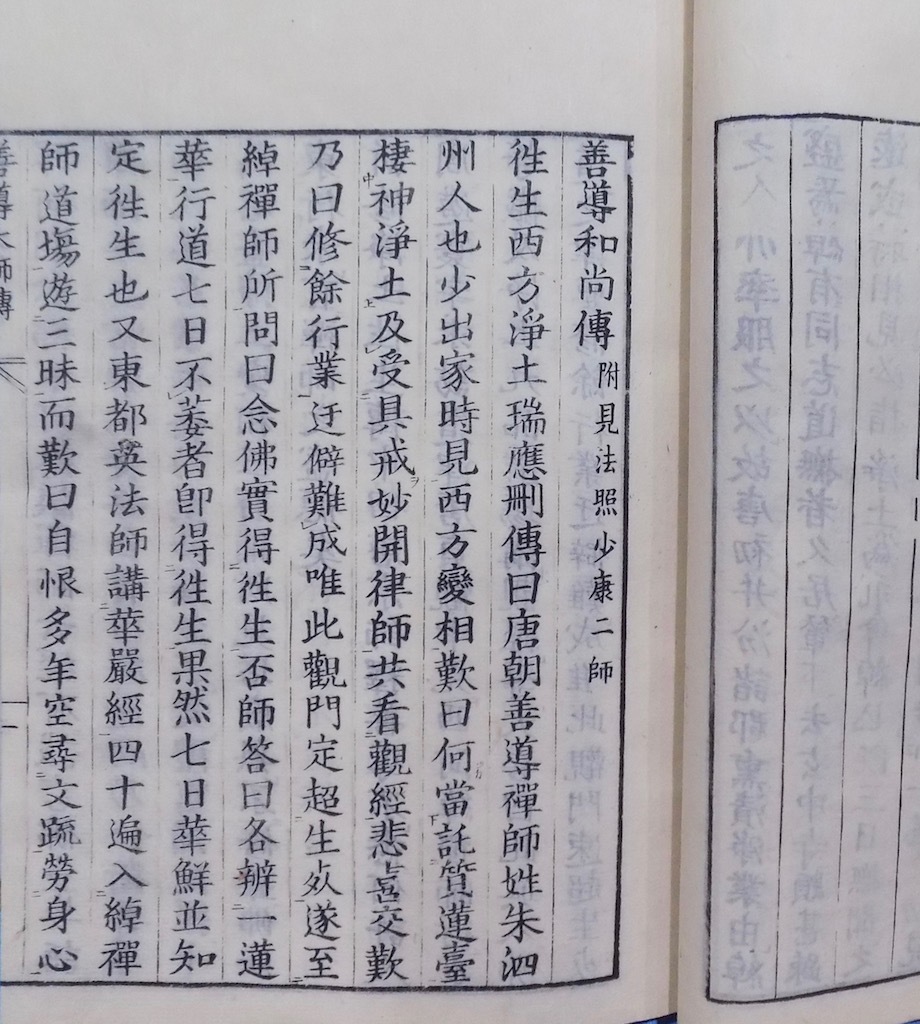 善導和尚傳 附見法照少康二師
徃生西方淨土瑞應刪傳曰唐朝善導禪師姓朱泗
州人也少出家時見西方變相歎曰何當託質蓮臺
棲神淨土及受具戒妙開律師共看觀經悲喜交歎
乃曰修餘行業迂僻難成唯此觀門定超生死遂至
綽禪師所問曰念佛實得徃生否師答曰各辨一蓮
華行道七日不萎者卽得徃生果然七日華鮮並知
定徃生也又東都英法師講華嚴經四十遍入綽禪
師道塲遊三昧而歎曰自恨多年空尋文疏勞身心
善導大師傳